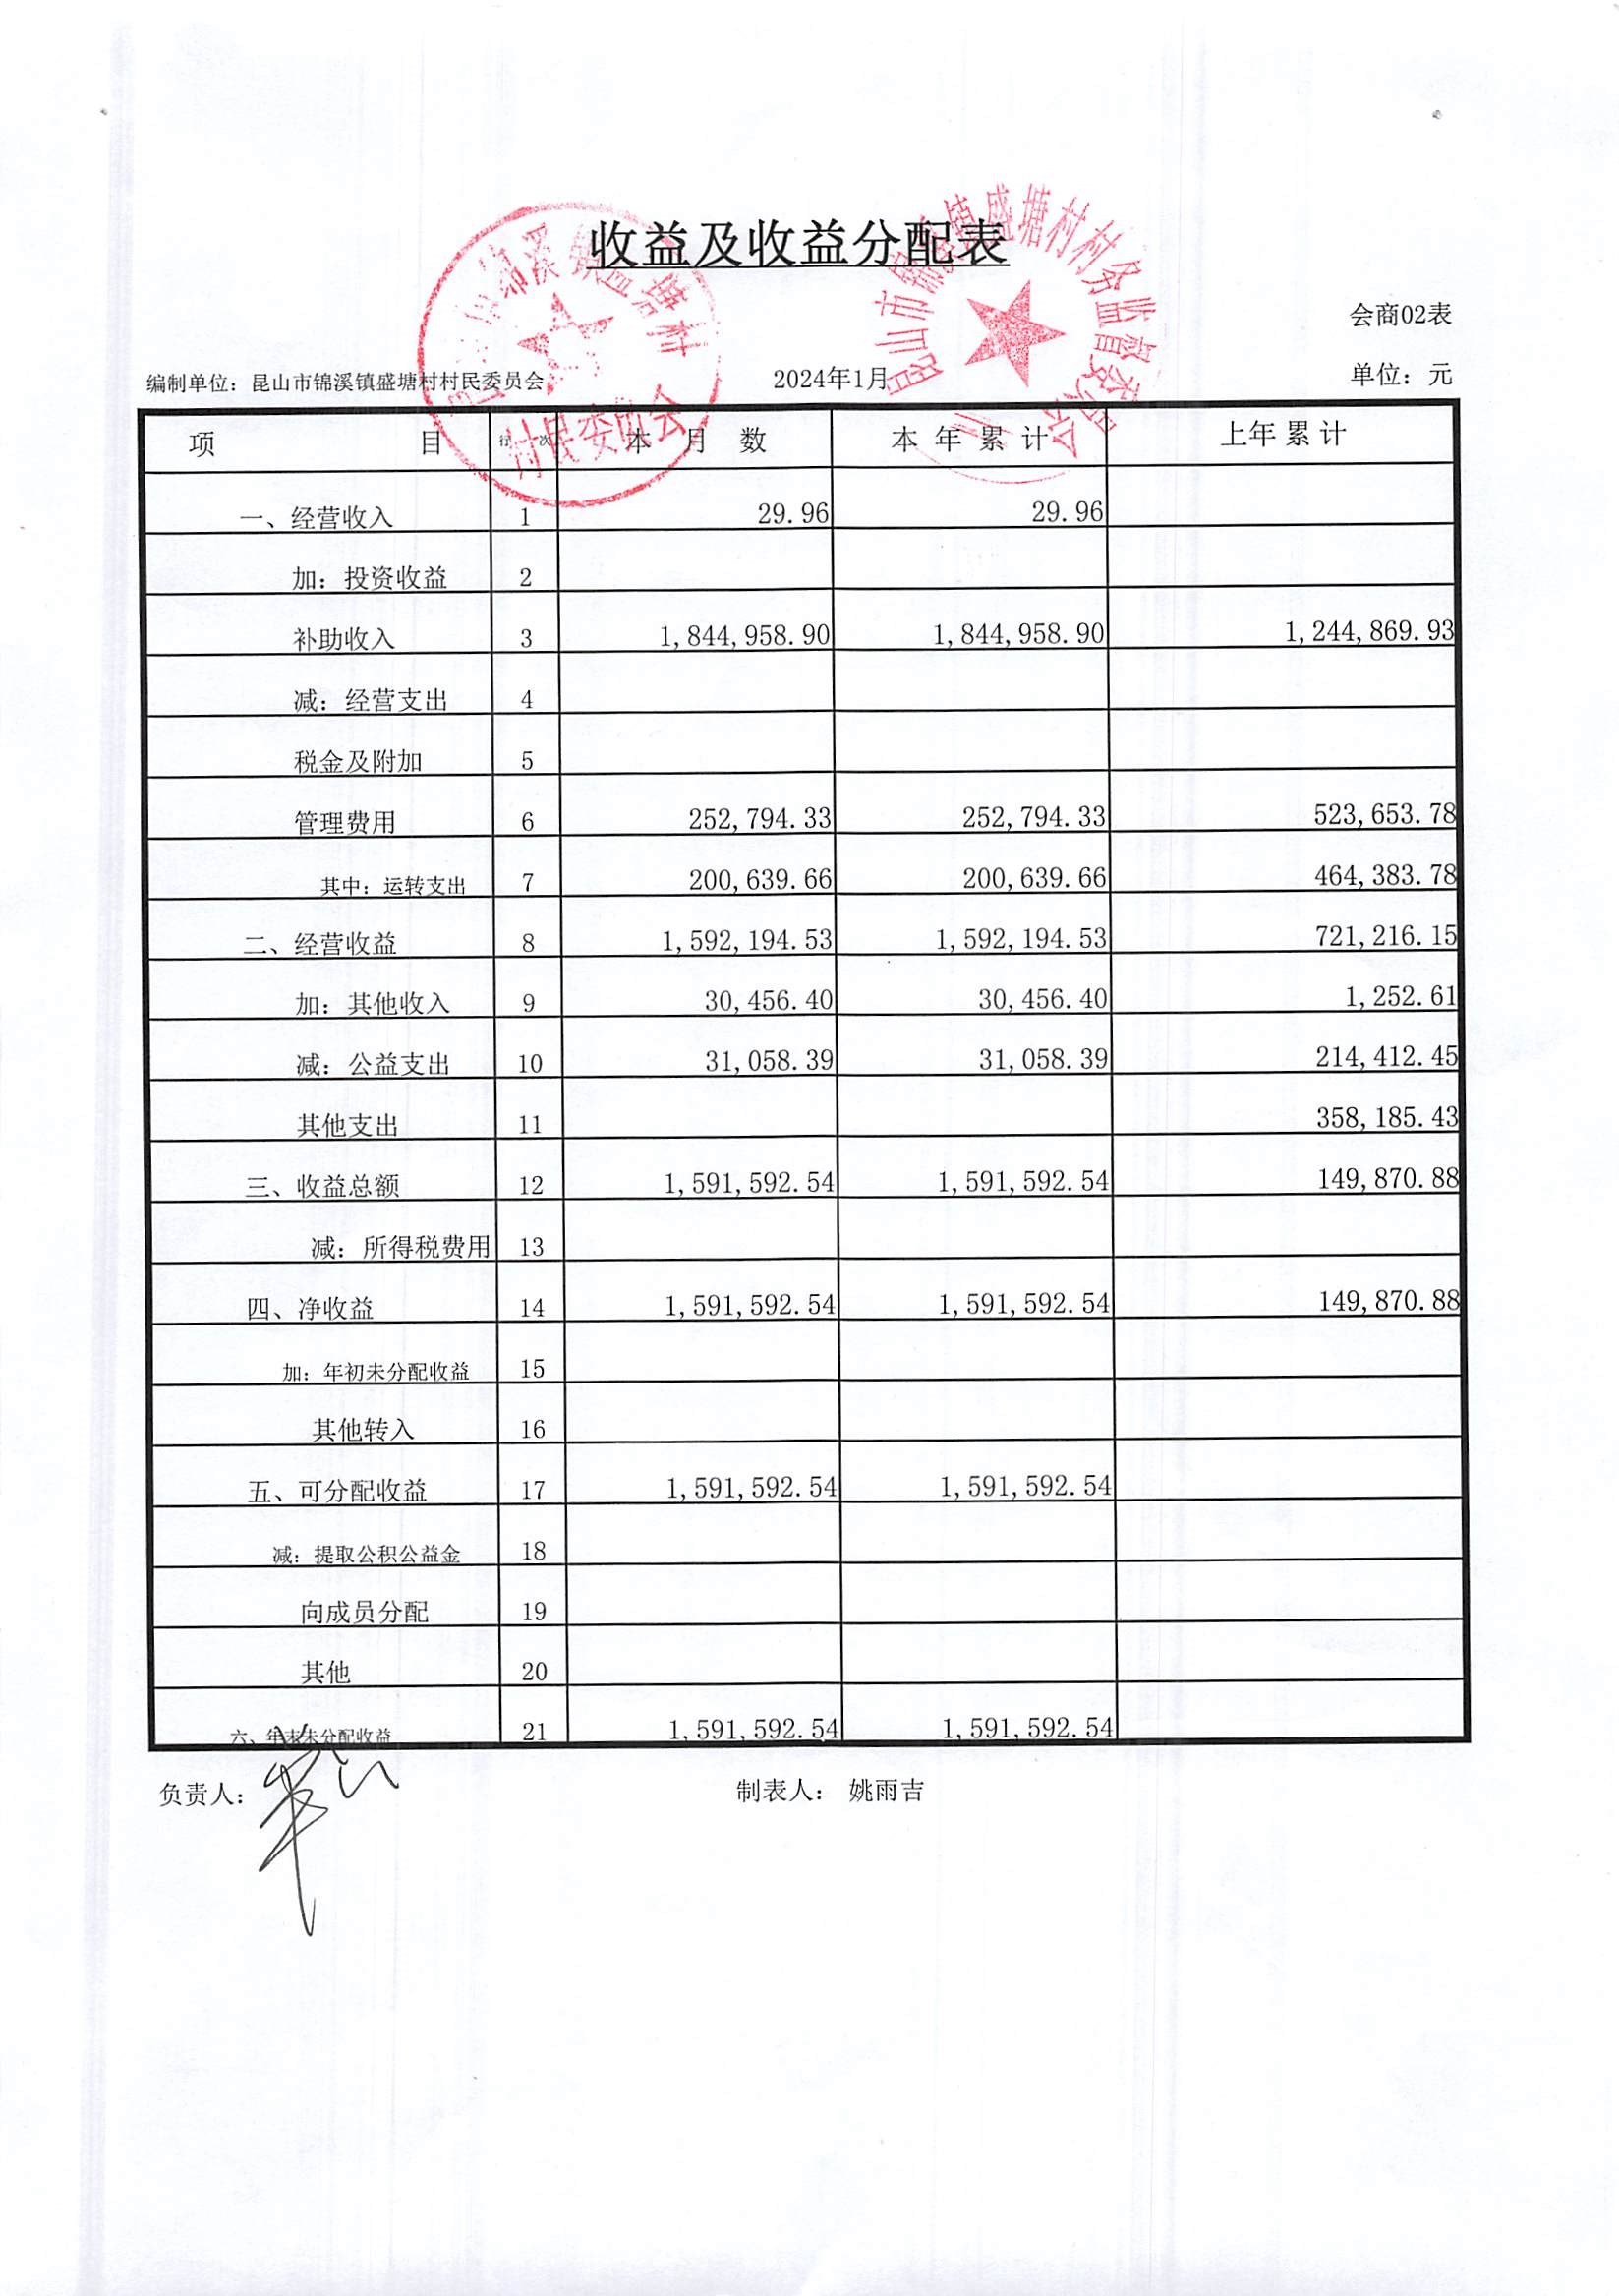 收益及收益分配表
会商02表
编制单位：昆山市锦溪镇盛塘村村民委员会 2024年1月 单位：元
项 目 行 次 本 月 数 本 年 累 计 上年累计
一、经营收入 1 29.96 29.96
加：投资收益 2
补助收入 3 1,844,958.90 1,844,958.90 1,244,869.93
减：经营支出 4
税金及附加 5
管理费用 6 252,794.33 252,794.33 523,653.78
其中：运转支出 7 200,639.66 200,639.66 464,383.78
二、经营收益 8 1,592,194.53 1,592,194.53 721,216.15
加：其他收入 9 30,456.40 30,456.40 1,252.61
减：公益支出 10 31,058.39 31,058.39 214,412.45
其他支出 11 358,185.43
三、收益总额 12 1,591,592.54 1,591,592.54 149,870.88
减：所得税费用 13
四、净收益 14 1,591,592.54 1,591,592.54 149,870.88
加：年初未分配收益 15
其他转入 16
五、可分配收益 17 1,591,592.54 1,591,592.54
减：提取公积公益金 18
向成员分配 19
其他 20
六、年末未分配收益 21 1,591,592.54 1,591,592.54
负责人： 制表人： 姚雨吉
锦溪镇盛塘村
村民委员会
昆山市锦溪镇盛塘村村务监督委员会